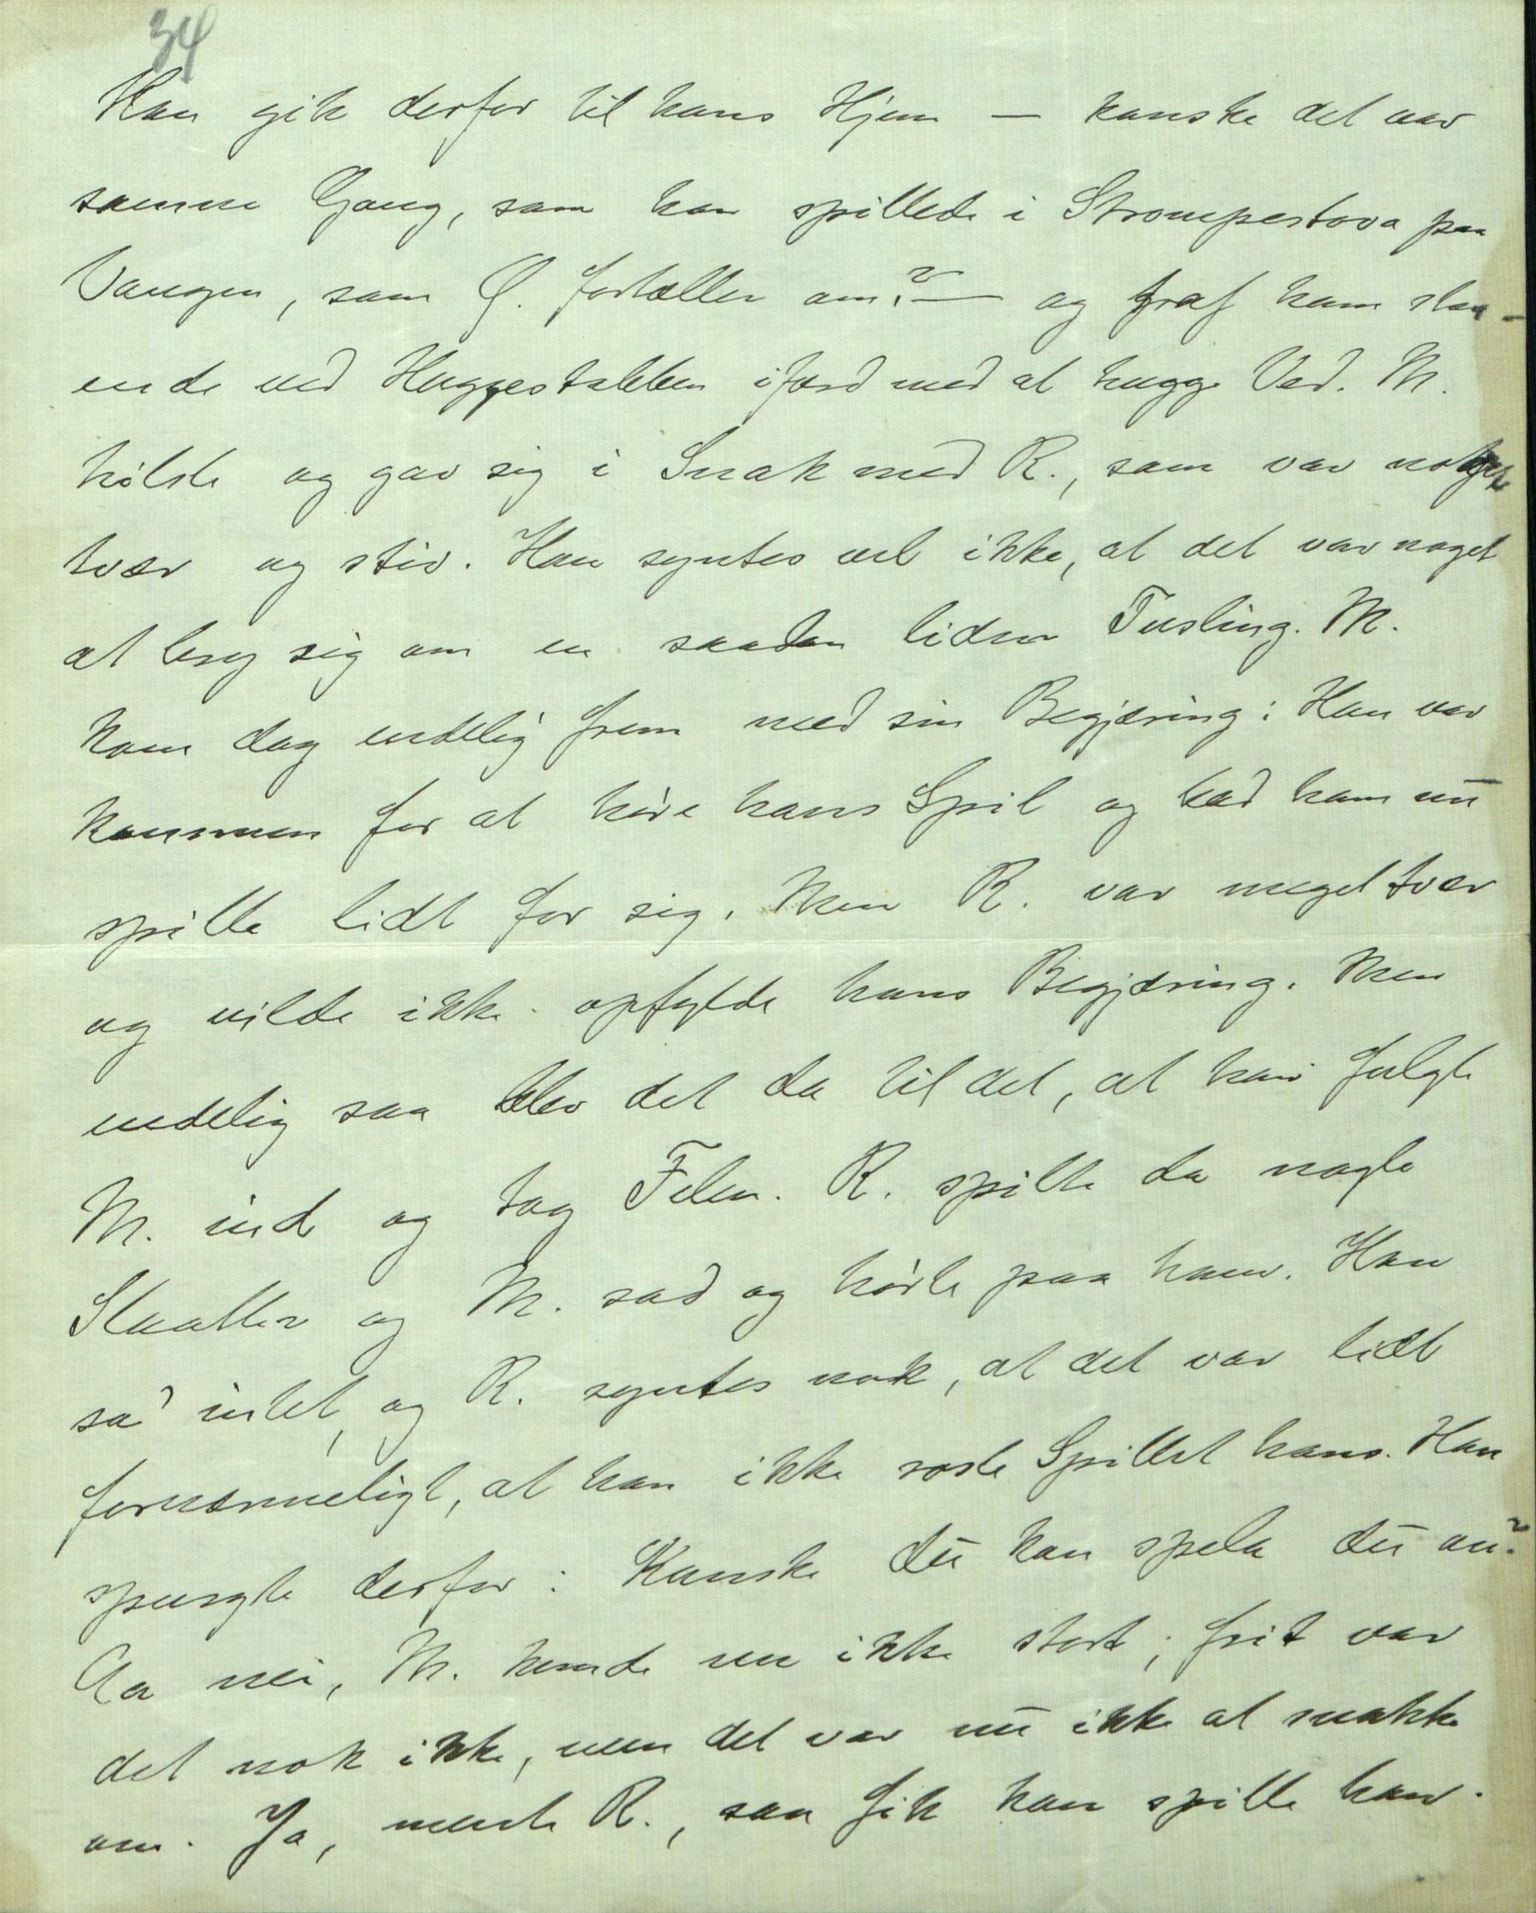 34
Han gik derfor til hans Hjem — kanske det var
samme Gang, som han spillede i Strompestova paa
Vangen, som Q. fortæller om? — og traf ham staa-
ende ved Huggestabben ifærd med at hugge Ved. M.
hilste og gav sig i Snak med R., som var noget
tvær og stiv. Han syntes vel ikke, at det var noget
at bry sig om en saadan liden Tusling. M.
kom dog endelig frem med sin Begjæring: Han var
kommen for at høre hans Spil og bad ham nu
spille lidt for sig. Men R. var meget tvær
og vilde ikke opfylde hans Begjæring. Men
endelig saa blev det da til det, at han fulgte
M. ind og tog Felen. R. spilte da nogle
Slaatter og M. sad og hørte paa ham. Han
sa' intet, og R. syntes nok, at det var lidt
fornærmeligt, at han ikke roste Spillet hans. Han
spurgte derfor: Kanske du kan spela du au?
Aa nei, M. kunde nu ikke stort; frit var
det nok ikke, men det var nu ikke at snakke
om. Ja, mente R., saa fik han spille han.